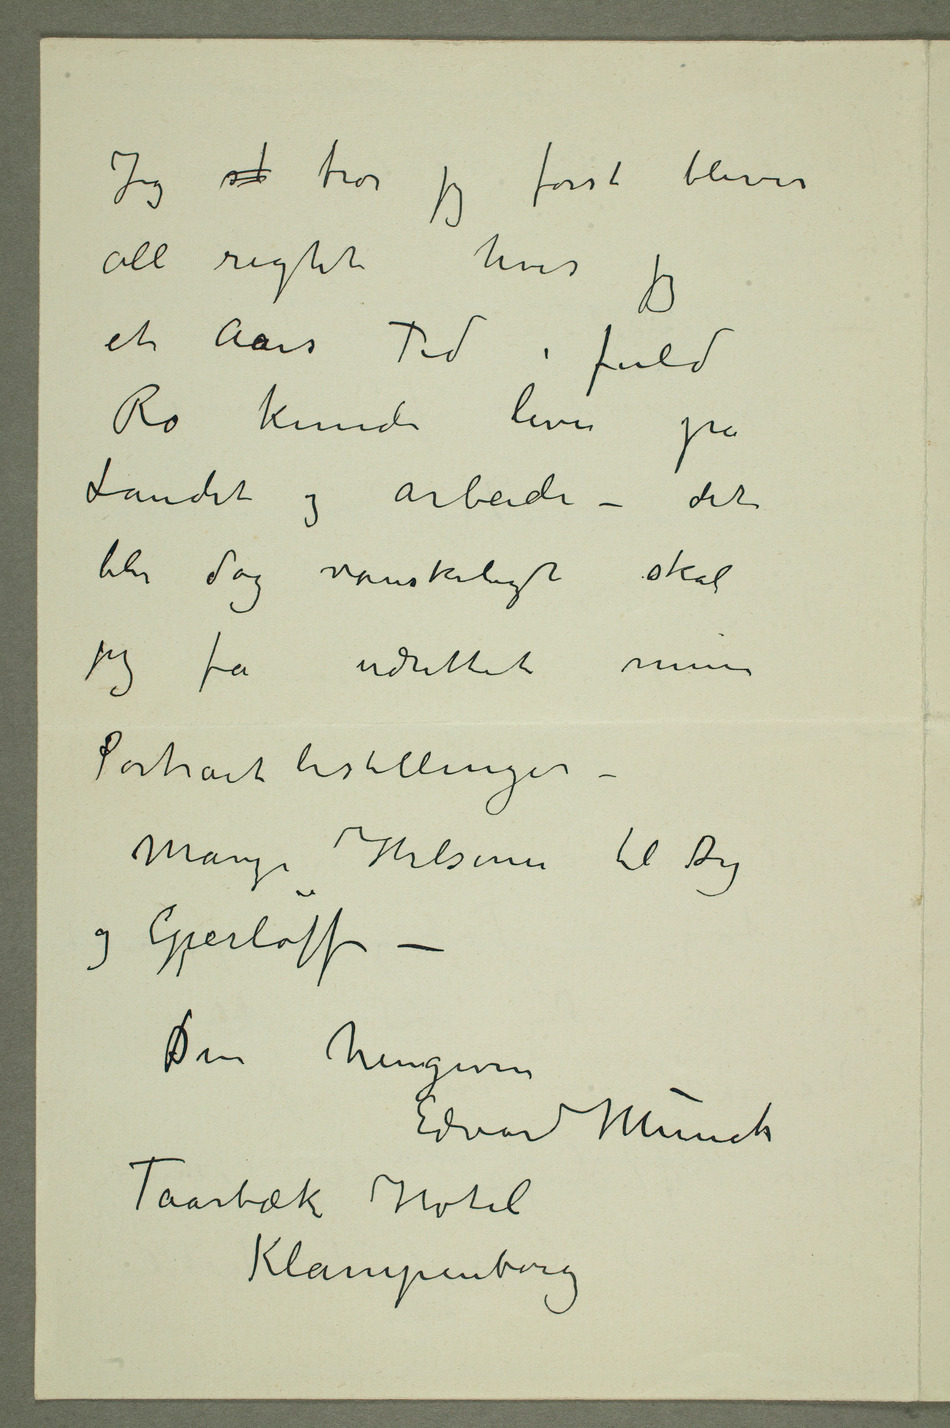 Jeg st tror jeg først bliver
all right hvis jeg
et Aars Tid i fuld
Ro kunde leve på
Landet og arbeide –  det
blir dog vanskeligt skal
jeg få udrettet mine
Portraitbestillinger –
Mange Hilsener til Dig
og Gjerlöff –
Din hengivne
Edvard Munch
Taarbæk Hotel
Klampenborg